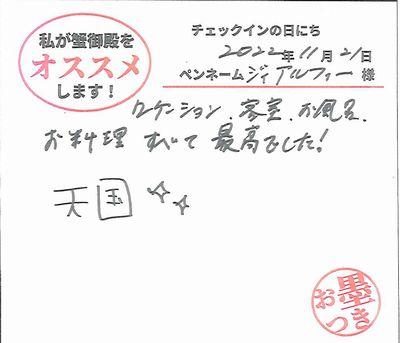 私が蟹御殿を
オススメ
します！
チェックインの日にち
2022年11月21日
ペンネーム ジィアルファー 様
ロケーション、客室、お風呂、
お料理 すべて 最高でした!
天国
お墨つき